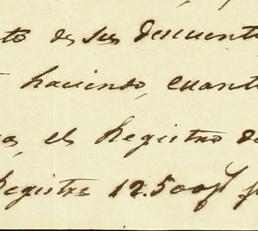 to de sus descuento
haciendo, cuanto
el Registro de
Registra 12.500